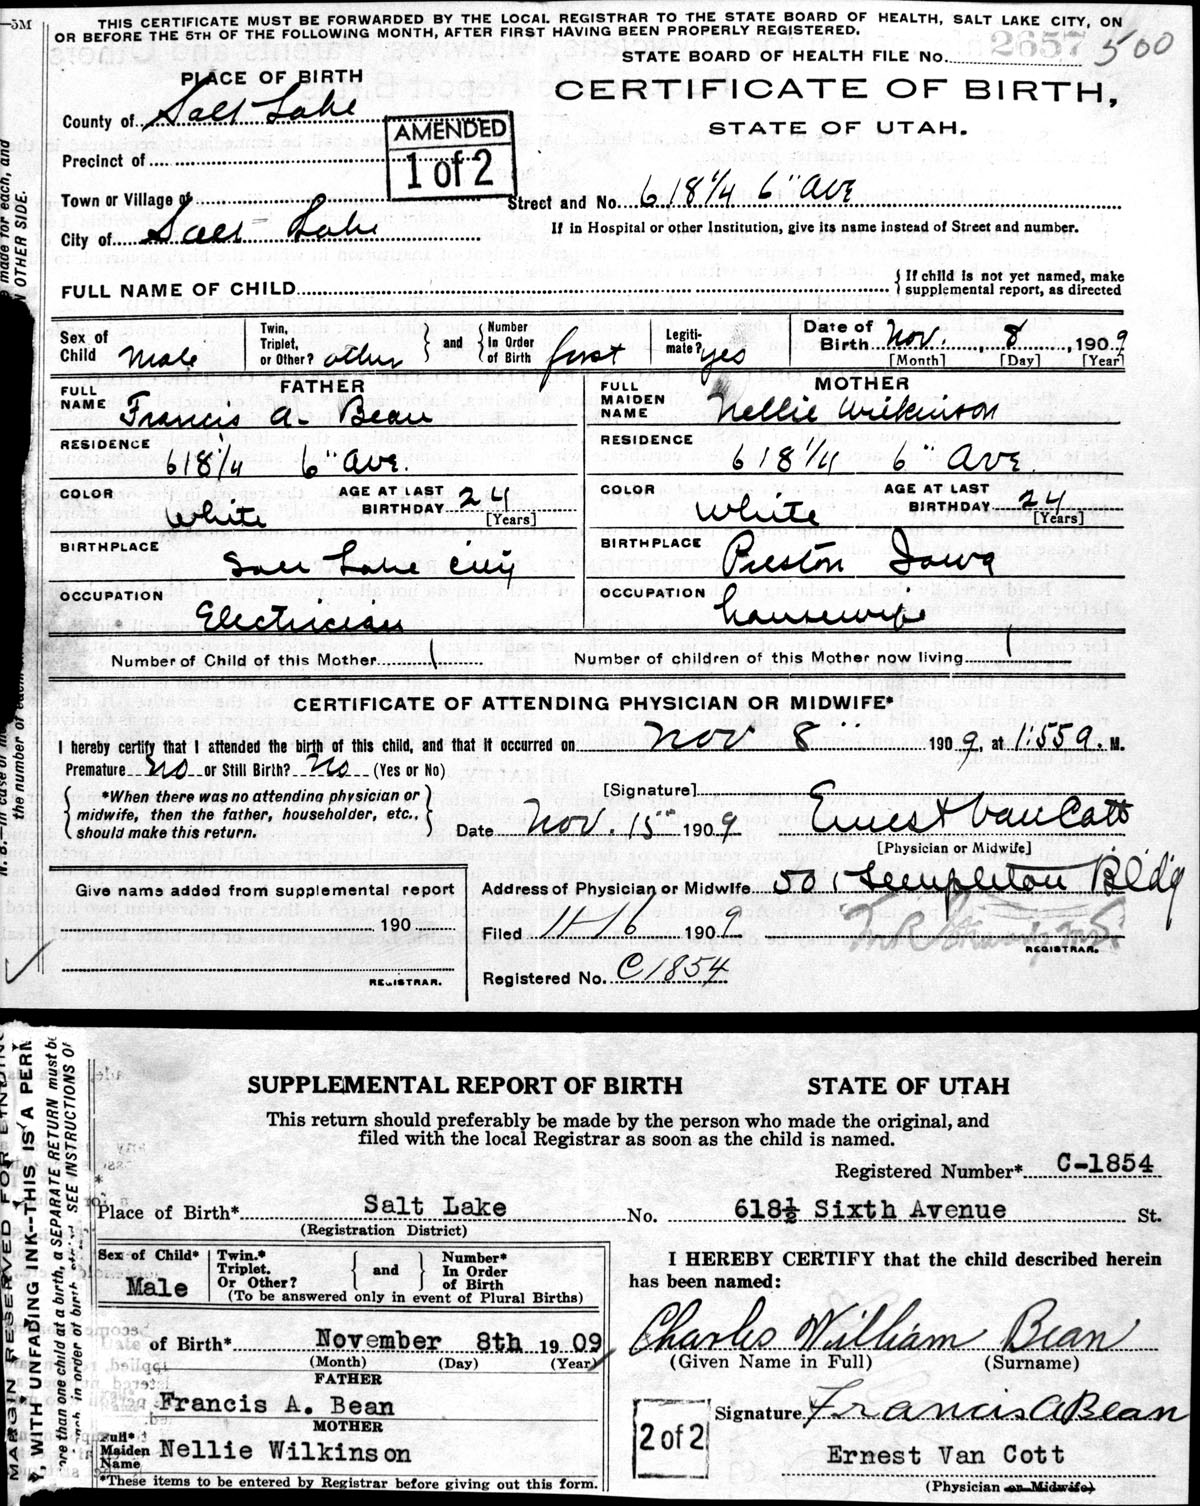 THIS CERTIFICATE MUST BE FORWARDED BY THE LOCAL REGISTRAR TO THE STATE BOARD OF HEALTH, SALT LAKE CITY, ON
OR BEFORE THE 5TH OF THE FOLLOWING MONTH, AFTER FIRST HAVING BEEN PROPERLY REGISTERED.
STATE BOARD OF HEALTH FILE No. 2657 500
PLACE OF BIRTH
CERTIFICATE OF BIRTH,
STATE OF UTAH.
County of Salt Lake
AMENDED
1 of 2
Precinct of
Town or Village of
Street and No. 618 1/4 6" Ave
City of Salt Lake
If in Hospital or other Institution, give its name instead of Street and number.
FULL NAME OF CHILD
{ If child is not yet named, make
supplemental report, as directed
Sex of Child Male
Twin, Triplet, or Other? other } and { Number In Order of Birth first
Legitimate? yes
Date of Birth Nov. 8, 1909
[Month] [Day] [Year]
FATHER
FULL NAME Francis A. Bean
RESIDENCE 618 1/4 6" Ave.
COLOR White AGE AT LAST BIRTHDAY 24 [Years]
BIRTHPLACE Salt Lake City
OCCUPATION Electrician
MOTHER
FULL MAIDEN NAME Nellie Wilkinson
RESIDENCE 618 1/4 6" Ave
COLOR White AGE AT LAST BIRTHDAY 24 [Years]
BIRTHPLACE Preston Iowa
OCCUPATION housewife
Number of Child of this Mother 1 Number of children of this Mother now living 1
CERTIFICATE OF ATTENDING PHYSICIAN OR MIDWIFE*
I hereby certify that I attended the birth of this child, and that it occurred on Nov 8" 1909, at 1:55 a. M.
Premature No or Still Birth? No (Yes or No)
{ *When there was no attending physician or
midwife, then the father, householder, etc.,
should make this return. }
[Signature] Ernest Van Cott
Date Nov. 15" 1909
[Physician or Midwife]
Give name added from supplemental report
190
REGISTRAR.
Address of Physician or Midwife 501 Templeton Bldg
Filed 11-16 1909
REGISTRAR.
Registered No. C1854
SUPPLEMENTAL REPORT OF BIRTH STATE OF UTAH
This return should preferably be made by the person who made the original, and
filed with the local Registrar as soon as the child is named.
Registered Number* C-1854
Place of Birth* Salt Lake No. 618½ Sixth Avenue St.
(Registration District)
Sex of Child* Male
Twin.* Triplet. Or Other? { and } Number* In Order of Birth
(To be answered only in event of Plural Births)
I HEREBY CERTIFY that the child described herein
has been named:
Date of Birth* November 8th 1909
(Month) (Day) (Year)
Charles William Bean
(Given Name in Full) (Surname)
FATHER
Francis A. Bean
MOTHER
Full* Maiden Name Nellie Wilkinson
*These items to be entered by Registrar before giving out this form.
2 of 2
Signature Francis A Bean
Ernest Van Cott
(Physician or Midwife)
MARGIN RESERVED FOR BINDING
WITH UNFADING INK--THIS IS A PERM
ore than one child at a birth, a SEPARATE RETURN must be
SEE INSTRUCTIONS OF